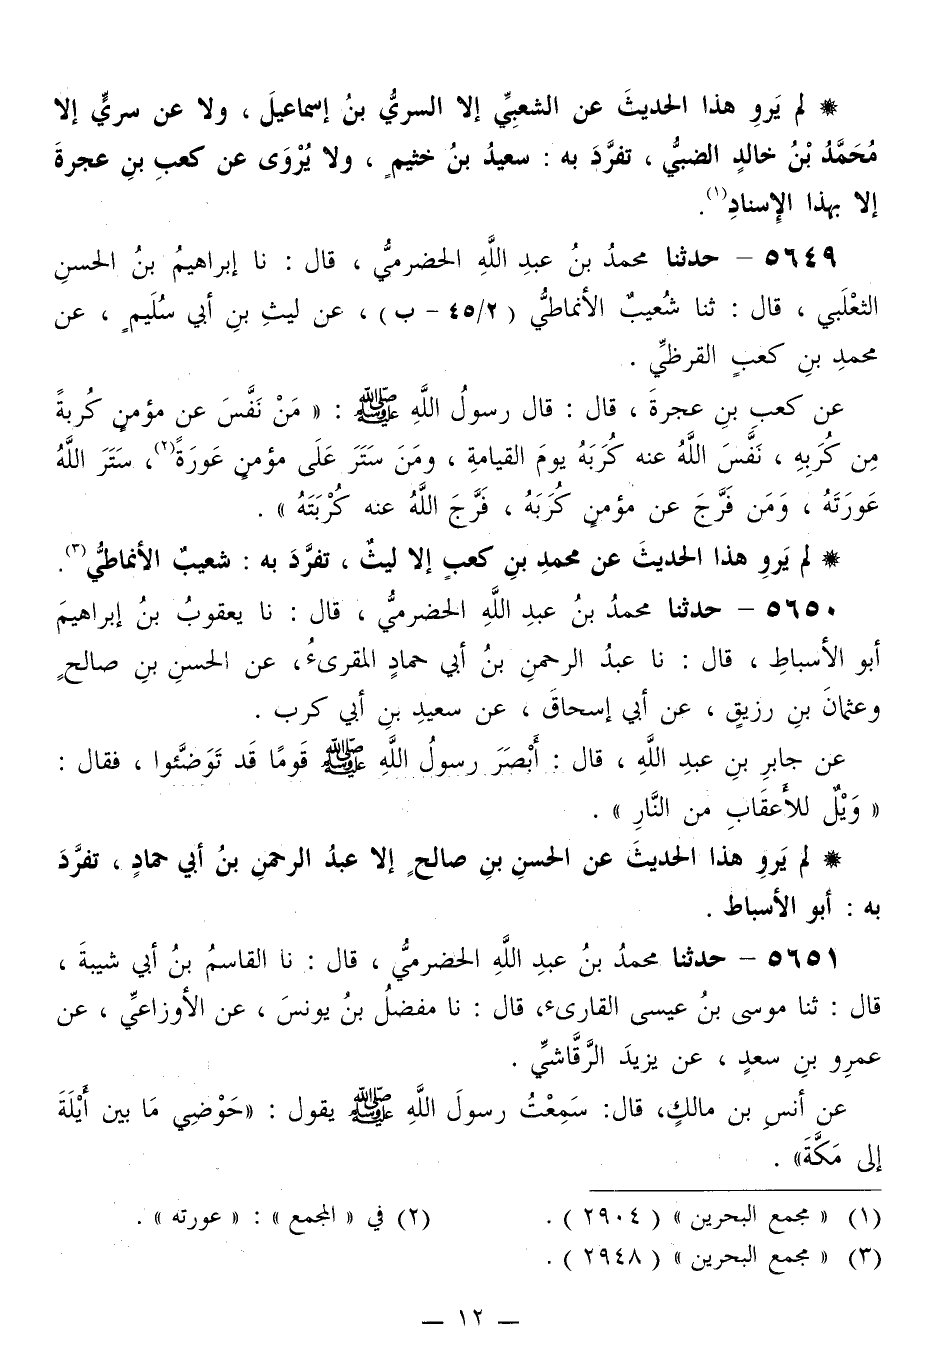 * لم يَروِ هذا الحديثَ عن الشعبِيِّ إلا السريُّ بنُ إسماعيلَ ، ولا عن سريٍّ إلا
مُحَمَّدُ بْنُ خالدٍ الضبيُّ ، تفرَّدَ به : سعيدُ بنُ خثيمٍ ، ولا يُرْوَى عن كعبِ بنِ عجرةَ
إلا بهذا الإِسنادِ(١).
٥٦٤٩ – حدثنا محمدُ بنُ عبدِ اللَّهِ الحضرميُّ ، قال : نا إبراهيمُ بنُ الحسنِ
الثعْلَبي ، قال : ثنا شُعيبٌ الأنماطيُّ ( ٤٥/٢ – ب ) ، عن ليثِ بنِ أبي سُلَيمٍ ، عن
محمدِ بنِ كعبٍ القرظيِّ .
عن كعبِ بنِ عجرةَ ، قال : قال رسولُ اللَّهِ ﷺ : « مَنْ نَفَّسَ عن مؤمنٍ كُربةً
مِن كُرَبِهِ ، نَفَّسَ اللَّهُ عنه كُرَبَهُ يومَ القيامةِ ، ومَنَ سَتَرَ عَلَى مؤمنٍ عَورَةً(٢)، سَتَرَ اللَّهُ
عَورَتَهُ ، وَمَن فَرَّجَ عن مؤمنٍ كُرَبَهُ ، فَرَّجَ اللَّهُ عنه كُرْبَتَهُ » .
* لم يَروِ هذا الحديثَ عن محمدِ بنِ كعبٍ إلا ليثٌ ، تفرَّدَ به : شعيبٌ الأنماطيُّ(٣).
٥٦٥٠ – حدثنا محمدُ بنُ عبدِ اللَّهِ الحضرميُّ ، قال : نا يعقوبُ بنُ إبراهيمَ
أبو الأسباطِ ، قال : نا عبدُ الرحمنِ بنُ أبي حمادٍ المقرىءُ، عن الحسنِ بنِ صالحٍ
وعثمانَ بنِ رزيقٍ ، عن أبي إسحاقَ ، عن سعيدِ بنِ أبي كرب .
عن جابرِ بنِ عبدِ اللَّهِ ، قال : أَبْصَرَ رسولُ اللَّهِ ﷺ قَومًا قَد تَوَضَّئوا ، فقال :
« وَيْلٌ للأَعقَابِ من النَّارِ » .
* لم يَروِ هذا الحديثَ عن الحسنِ بنِ صالحٍ إلا عبدُ الرحمنِ بنُ أبي حمادٍ ، تفرَّدَ
به : أبو الأسباط .
٥٦٥١ – حدثنا محمدُ بنُ عبدِ اللَّهِ الحضرميُّ ، قال : نا القاسمُ بنُ أبي شيبةَ ،
قال : ثنا موسى بنُ عيسى القارىء، قال : نا مفضلُ بنُ يونسَ ، عن الأوزاعيِّ ، عن
عمرِو بنِ سعدٍ ، عن يزيدَ الرَّقَّاشيِّ .
عن أنسِ بن مالكٍ، قال: سَمِعْتُ رسولَ اللَّهِ ﷺ يقول : «حَوْضِي مَا بين أَيْلَةَ
إلى مَكَّةَ» .
(١) « مجمع البحرين » ( ٢٩٠٤ ) . (٢) في « المجمع » : « عورته » .
(٣) « مجمع البحرين » ( ٢٩٤٨ ) .
— ١٢ —